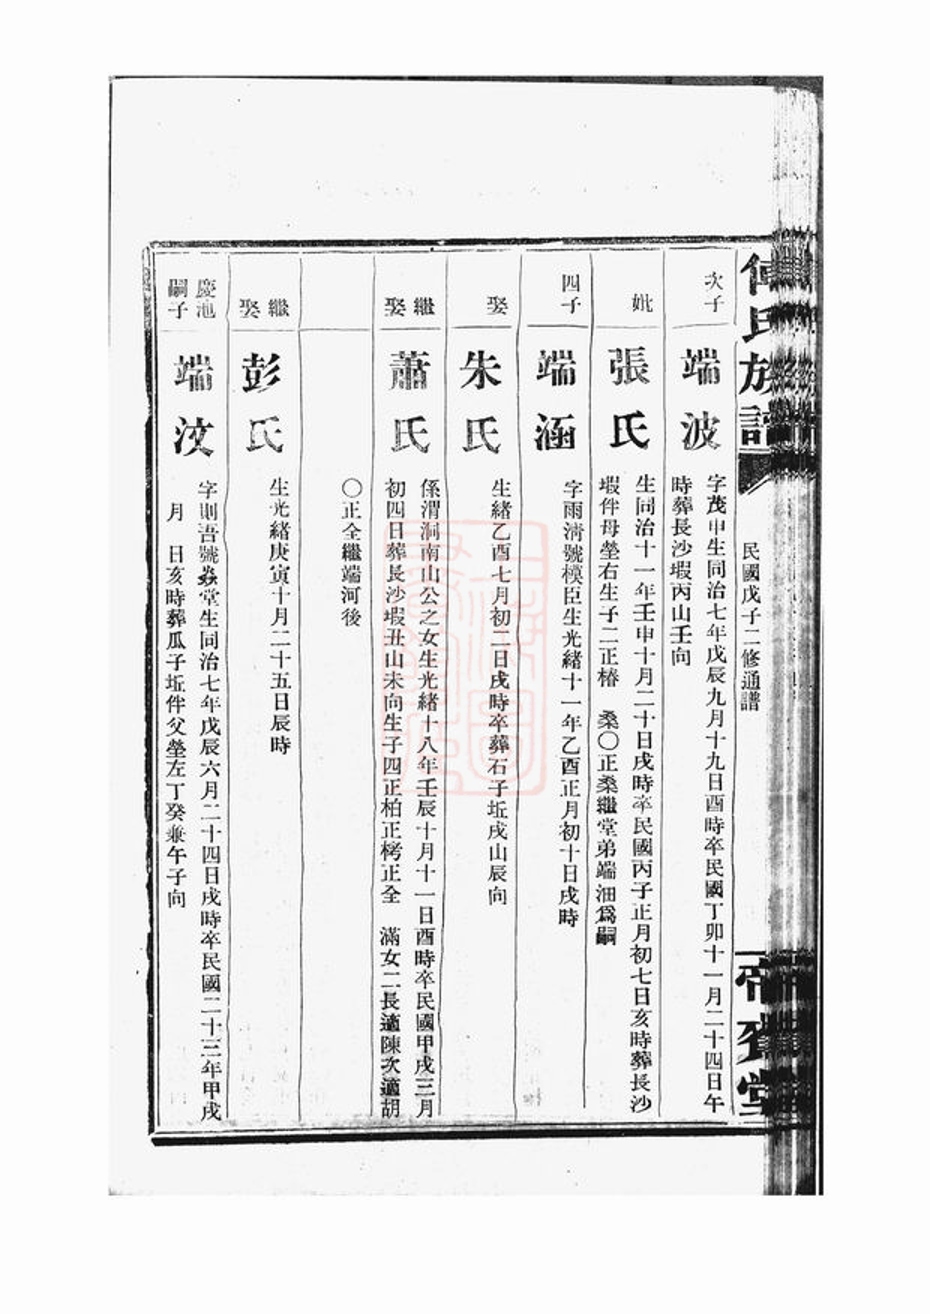 何氏族譜
民國戊子二修通譜
帝賚堂
次子
端波
字茂申生同治七年戊辰九月十九日酉時卒民國丁卯十一月二十四日午
時葬長沙塅丙山壬向
妣
張氏
生同治十一年壬申十月二十日戌時卒民國丙子正月初七日亥時葬長沙
塅伴母塋右生子二正椿 桑〇正桑繼堂弟端沺爲嗣
四子
端涵
字雨淸號模臣生光緒十一年乙酉正月初十日戌時
娶
朱氏
生緒乙酉七月初二日戌時卒葬石子坵戌山辰向
繼娶
蕭氏
係渭洞南山公之女生光緒十八年壬辰十月十一日酉時卒民國甲戌三月
初四日葬長沙塅丑山未向生子四正柏正栲正全 滿女二長適陳次適胡
〇正全繼端河後
繼娶
彭氏
生光緒庚寅十月二十五日辰時
慶池嗣子
端汶
字則吾號蟊堂生同治七年戊辰六月二十四日戌時卒民國二十三年甲戌
月 日亥時葬瓜子坵伴父塋左丁癸兼午子向